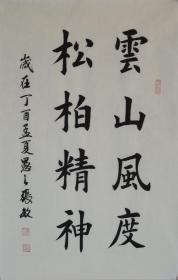 雲山風度
松柏精神
歲在丁酉孟夏愚之張敏